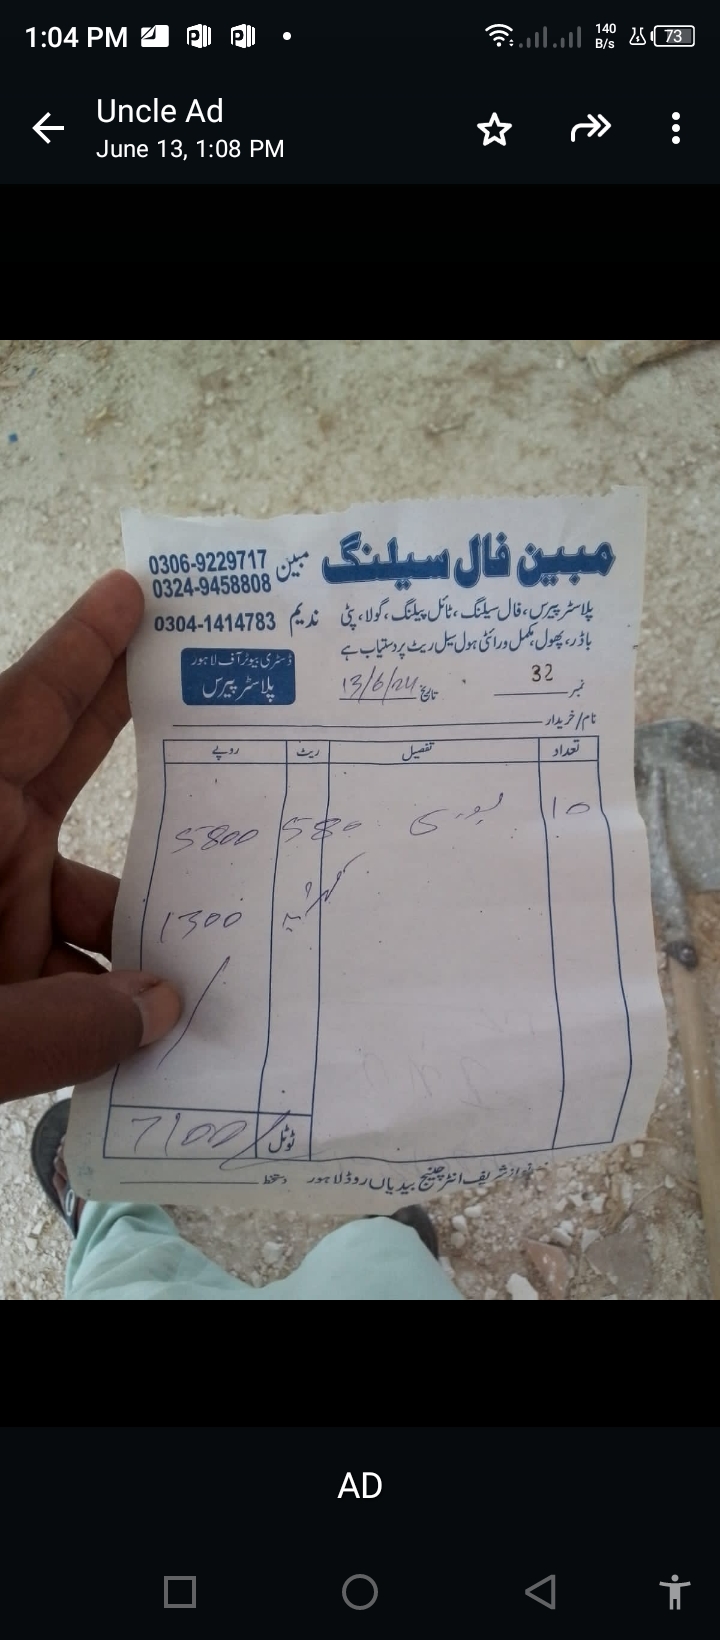 1:04 PM 140 B/s 73
Uncle Ad
June 13, 1:08 PM
مبین فال سیلنگ
مبین 0306-9229717
0324-9458808
ندیم 0304-1414783
پلاسٹر پیرس، فال سیلنگ، ٹائل پیلنگ، گولا، پٹی
باڈر، پھول، مکمل ورائٹی ہول سیل ریٹ پر دستیاب ہے
ڈسٹری بیوٹر آف لاہور
پلاسٹر پیرس
نمبر 32 تاریخ 13/6/24
نام/خریدار
تعداد تفصیل ریٹ روپے
10 بوری 580 5800
کرایہ 1300
ٹوٹل 7100/
نواز شریف انٹرچینج بیدیاں روڈ لاہور دستخط
AD